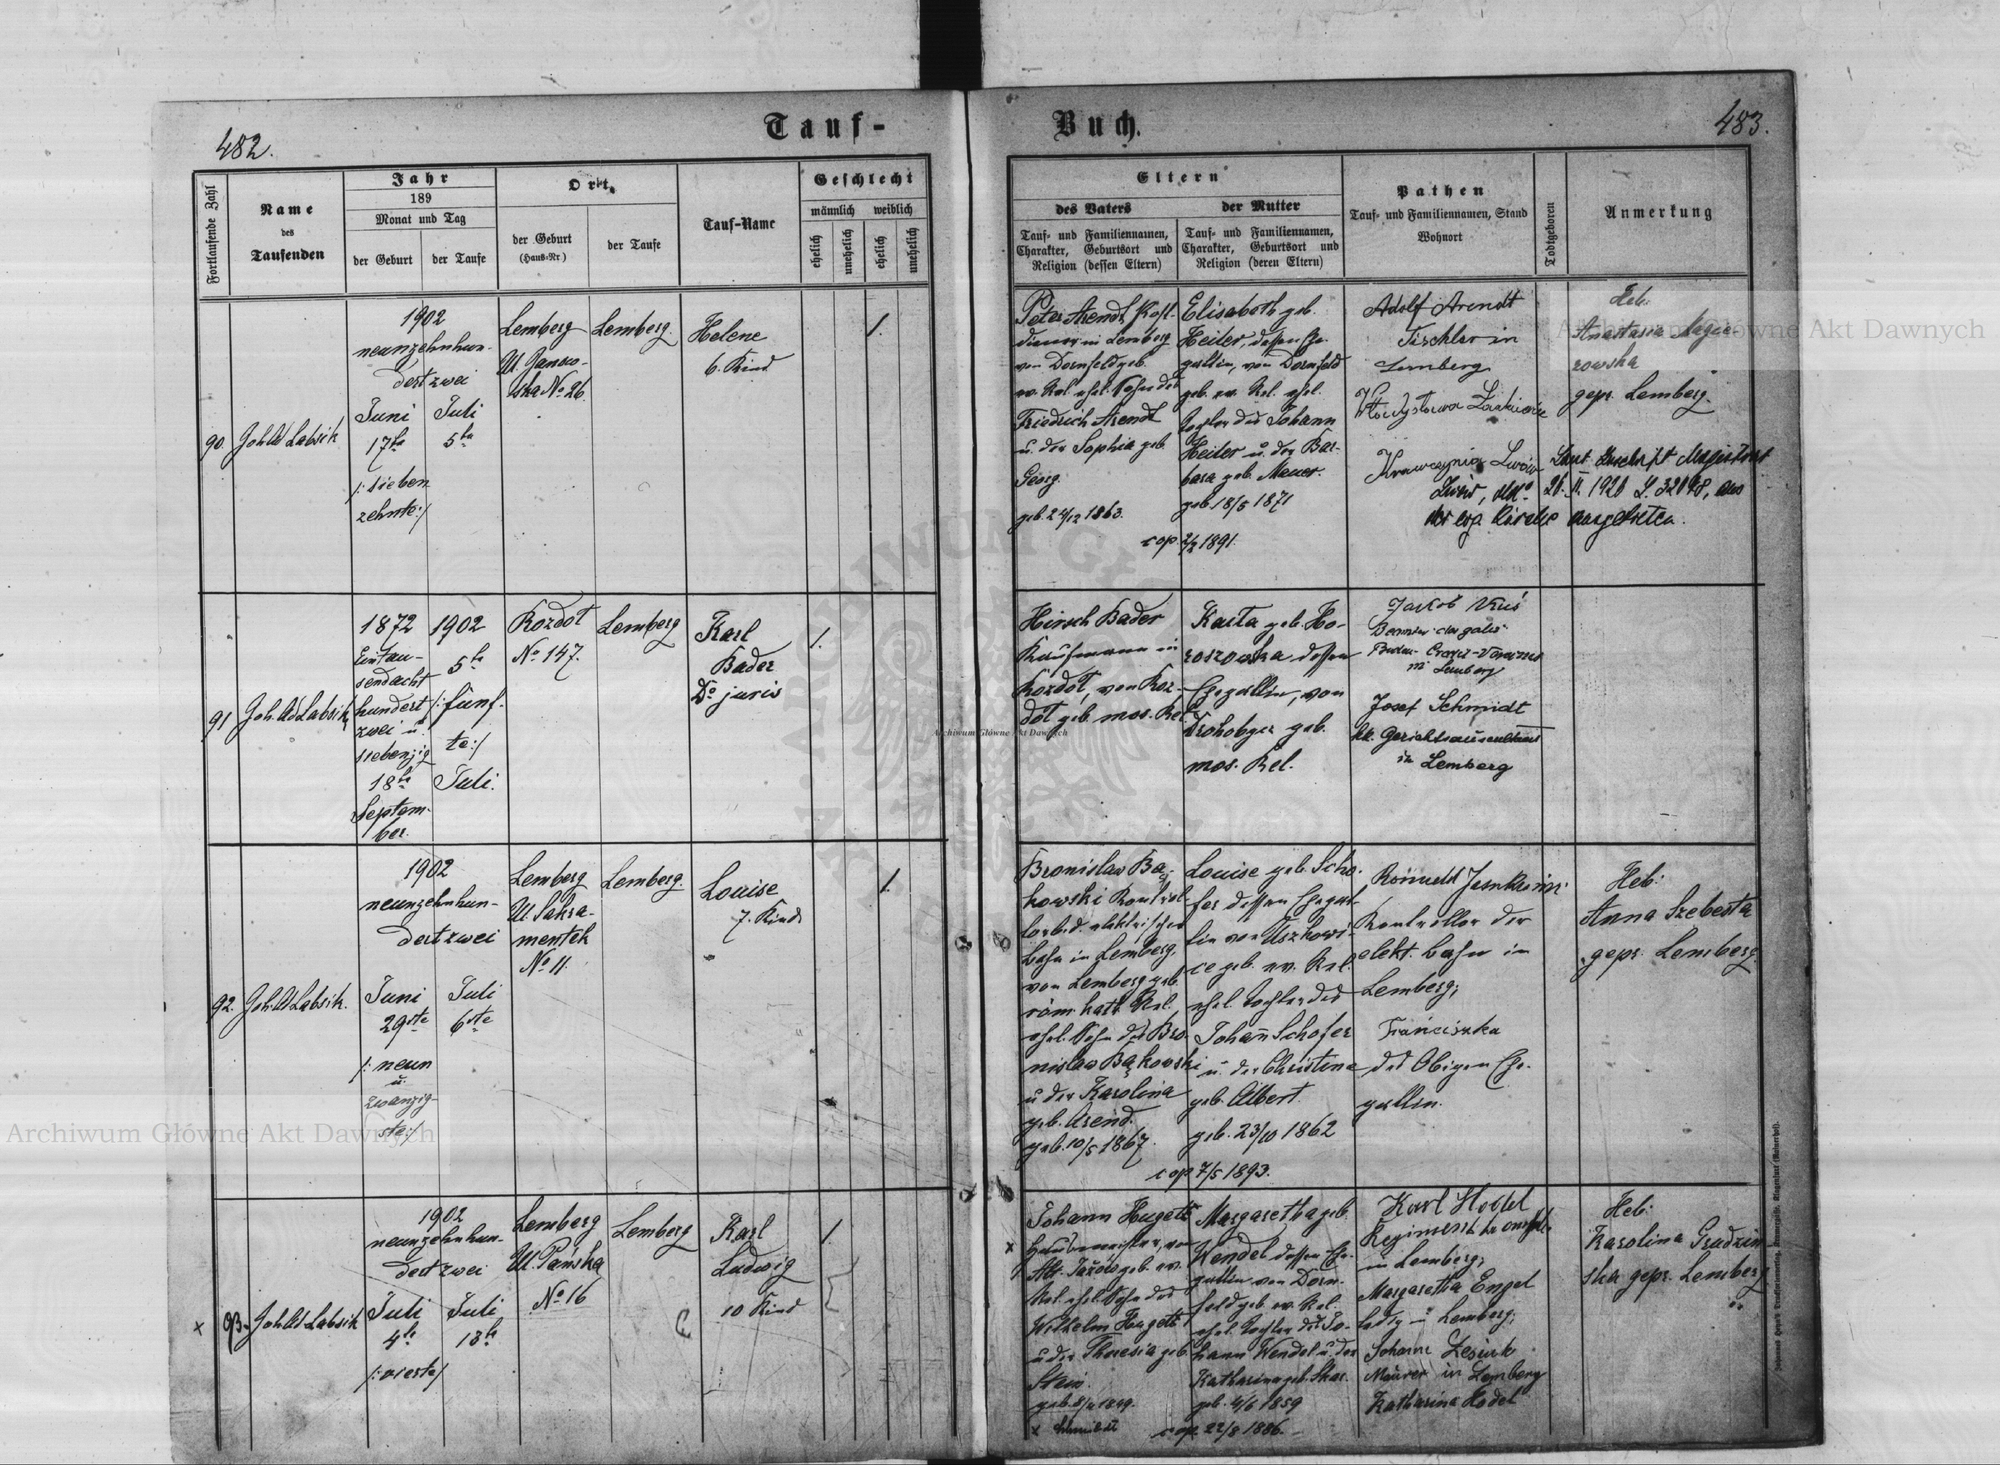 482.
Tauf-
Buch.
483.
Fortlaufende Zahl
Name
des
Taufenden
Jahr
189
Monat und Tag
der Geburt
der Taufe
Ort
der Geburt
(Haus-Nr)
der Taufe
Tauf-Name
Geschlecht
männlich
weiblich
ehelich
unehelich
ehelich
unehelich
Eltern
des Vaters
Tauf- und Familiennamen,
Charakter, Geburtsort und
Religion (dessen Eltern)
der Mutter
Tauf- und Familiennamen,
Charakter, Geburtsort und
Religion (deren Eltern)
Pathen
Tauf- und Familiennamen, Stand
Wohnort
Todtgeboren
Anmerkung
90
Joh. Ad Labsik
1902
neunzehnhun-
dert zwei
Juni
17te
/: sieben
zehnte :/
Juli
5te
Lemberg
Ul. Janow-
ska No 26.
Lemberg.
Helene
6. Kind
/.
Peter Arendt
diener in Lemberg
von Dornfeld geb.
ev. Rel. ehel. Sohn des
Friedrich Arendt
u. der Sophia geb.
Georg.
geb. 24/12 1863.
Elisabeth geb.
Heiler dessen Ehe-
gattin, von Dornfeld
geb. ev. Rel. ehel.
Tochter des Johann
Heiler u. der Bar-
bara geb. Mauer.
geb. 18/5 1871
cop. 2/2 1891.
Adolf Arendt
Tischler in
Lemberg
Heb:
Anastasia
rowska
gepr. Lemberg.
Laut Zuschrift Magistrat
1920
der evg. Kirche ausgetreten.
91
Joh. Ad Labsik
1872
Eintau-
sendacht
hundert
zwei u.
siebenzig
18te
Septem-
ber.
1902
5te
/: fünf-
te :/
Juli.
Rozdoł
No 147.
Lemberg
Karl
Bader
Dr juris
/.
Hirsch Bader
Kaufmann in
Rozdoł, von Roz-
doł geb. mos. Rel.
geb. Ho-
roszowska dessen
Ehegattin, von
Drohobycz geb.
mos. Rel.
Jakób
in Lemberg
Josef Schmidt
kk. Gerichtsauscultant
in Lemberg
92.
Joh. Ad Labsik.
1902
neunzehnhun-
dert zwei
Juni
29ste
/: neun
u.
zwanzig-
ste :/
Juli
6ste
Lemberg
Ul. Sakra-
mentek
No 11.
Lemberg.
Louise
7. Kind
/.
Bronisław Bą-
kowski Kontrol-
lor bed. elektrischer
Bahn in Lemberg
von Lemberg geb.
röm. kath. Rel.
ehel. Sohn des Bro-
nisław Bąkowski
u der Karolina
geb. Arend.
geb. 10/5 1867.
Louise geb. Scho-
fer dessen Ehegat-
tin von Uszkowi-
ce geb. ev. Rel.
ehel. Tochter des
Johann Schofer
u. der Christina
geb. Albert.
geb. 23/10 1862
cop 7/5 1893.
Romuald
Kontrollor der
elekt. Bahn in
Lemberg;
Franciszka
des Obigen Ehe-
gattin.
Heb:
Anna Szebesta
gepr. Lemberg
x
93.
Joh Ad Labsik
1902
neunzehnhun-
dert zwei
Juli
4te
/: vierte /
Juli
13te
Lemberg
Ul. Pańska
No 16
Lemberg
Karl
Ludwig
10 Kind
/.
x
Johann Hugett
von
Alt. Jażów geb. ev.
Rel. ehel. Sohn des
Wilhelm Hugett
u der Theresia geb.
Stein.
Margaretha geb.
Wendel dessen Ehe-
gattin von Dorn-
feld geb. ev. Rel.
ehel. Tochter des Jo-
hann Wendel u. der
Katharina geb.
geb. 4/6 1859
cop. 22/8 1886.
Karl Hodel
in Lemberg;
Margaretha Engel
ledig in Lemberg;
Johann
Maurer in Lemberg
Katharina Hodel
Heb:
Karolina Grudzin
ska gepr. Lemberg
Archiwum Główne Akt Dawnych
Archiwum Główne Akt Dawnych
Archiwum Główne Akt Dawnych